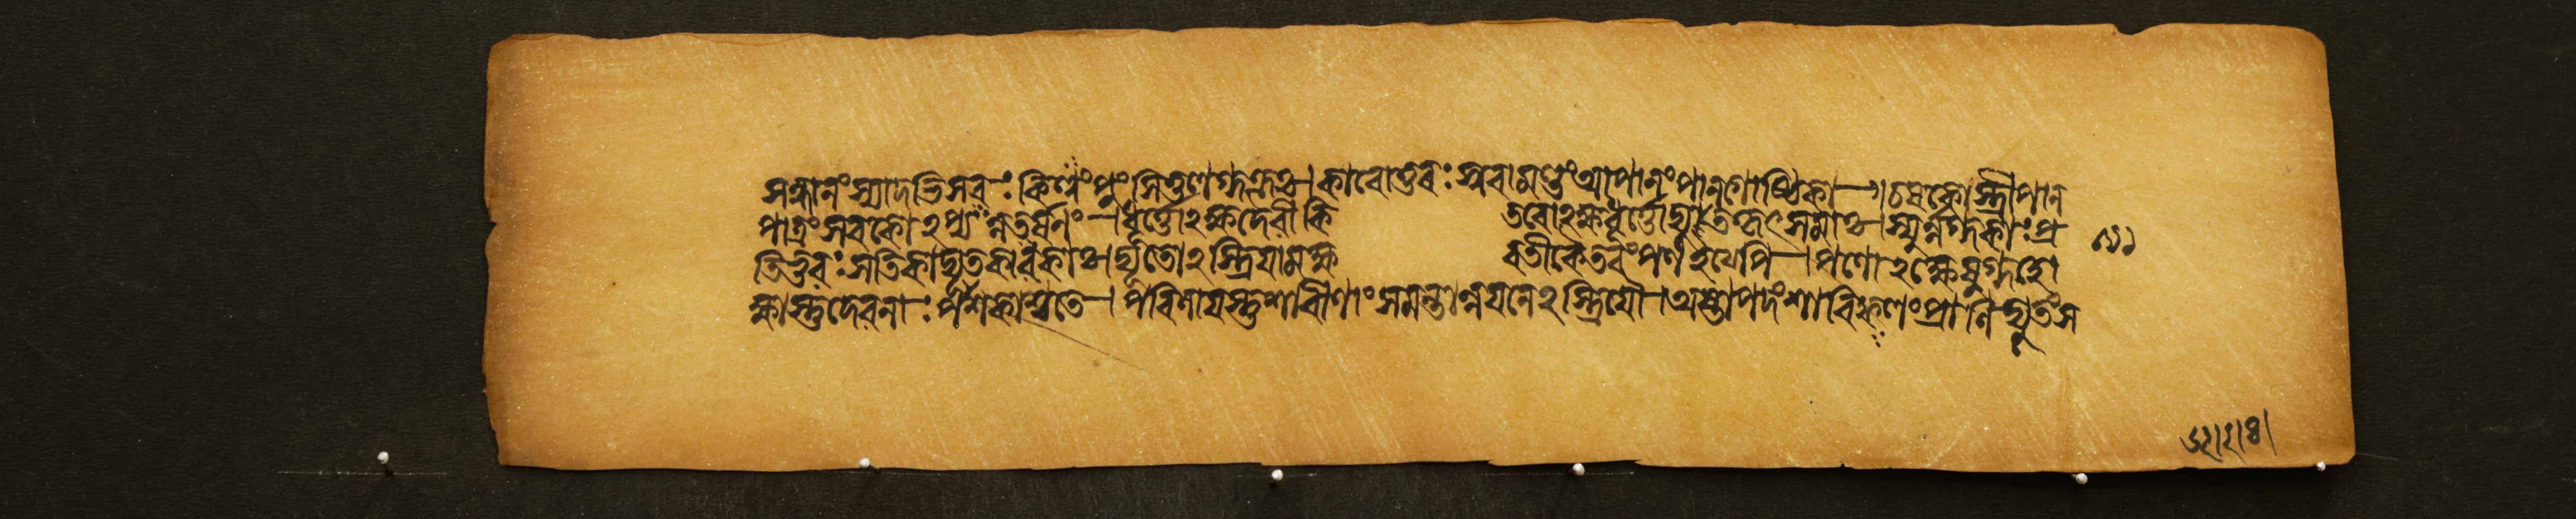 সন্ধানং স্যাদভিসবঃ কিণ্বং পুংসি তু ণগ্নহূঞ । কারোত্তরঃ সুরামণ্ডং আপানং পানগোষ্ঠিকা ॥ চষকোস্ত্রী পান
পাত্রং সরকো ঽপ্যনুতর্ষনং । ধূর্ত্তোঽক্ষদেবী কি তবোঽক্ষধূর্ত্তো দ্যূতকৃৎসমাঞ । স্যুর্ল্লগ্নকাঃ প্র
তিভুবঃ সভিকা দ্যূতকারকাঞ । দ্যূতোঽস্ত্রিয়ামক্ষ বতী কৈতবং পণঽত্যপি । পণোঽক্ষেষু গ্লহো
ক্ষাস্তু দেবনাঃ পাশকাশ্চ তে । পরিণায়স্তু শারীণাং সমন্তান্নয়নেঽস্ত্রিয়ৌ । অষ্টাপদং শারিফলং প্রাণিদ্যূতং স